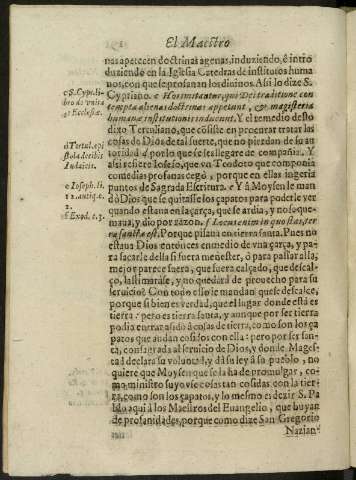 El Maestro
nas apetecen doctrinas agenas, induziendo, è intro
duziendo en la Iglesia Catedras de institutos huma
nos, con que se profanan los diuinos. Asi lo dize S.
Cypriano. c Hos imitantur, qui Dei traditione con
tempta alienas doctrinas appetunt, & magisteria
humanæ institutionis inducunt. Y el remedio desto
dixo Tertuliano, que cõsiste en procurar tratar las
cosas de Dios de tal suerte, que no pierdan de su au
toridad d por lo que se les llegare de compañia. Y
assi refiere Iosefo, que vn Teodoto que componia
comedias profanas cegò, porque en ellas ingeria
puntos de Sagrada Escritura. e Y à Moysen le man
dò Dios que se quitasse los çapatos para poderle ver
quando estaua en la çarça, que se ardia, y no se que-
maua, y dio por razon, f Locus enim in quo stas, ter
ra sancta est. Porque pisaua en tierra santa. Pues no
estaua Dios entonces en medio de vna çarça, y pa-
ra sacarle della si fuera menester, ò para passar allà,
mejor parece fuera, que fuera calçado, que descal-
ço, la stimàrase, y no quedàra de prouecho para su
seruicio? Con todo esso le mandan que se descalce,
porque si bien es verdad, que el lugar donde està es
tierra: pero es tierra santa, y aunque por ser tierra
podia entrar asido à cosas de tierra, como son los ça
patos que andan cosidos con ella: pero por ser san-
ta, consagrada al seruicio de Dios, y donde Mages-
tad declara su voluntad, y dà su ley à su pueblo, no
quiere que Moysen que se la ha de promulgar, co-
mo ministro suyo vse cosas tan cosidas con la tier-
ra, como son los çapatos, y lo mesmo es dezir S. Pa
blo aqui à los Maestros del Euangelio, que huyan
de profanidades, porque como dize San Gregorio
Nazian-
c S. Cypr. li-
bro de vnita
te Ecclesiæ.
d Tertul. epi
stola de cibis
Iudaicis.
e Ioseph. li.
12. antiq. c.
2.
f Exod. c. 3.